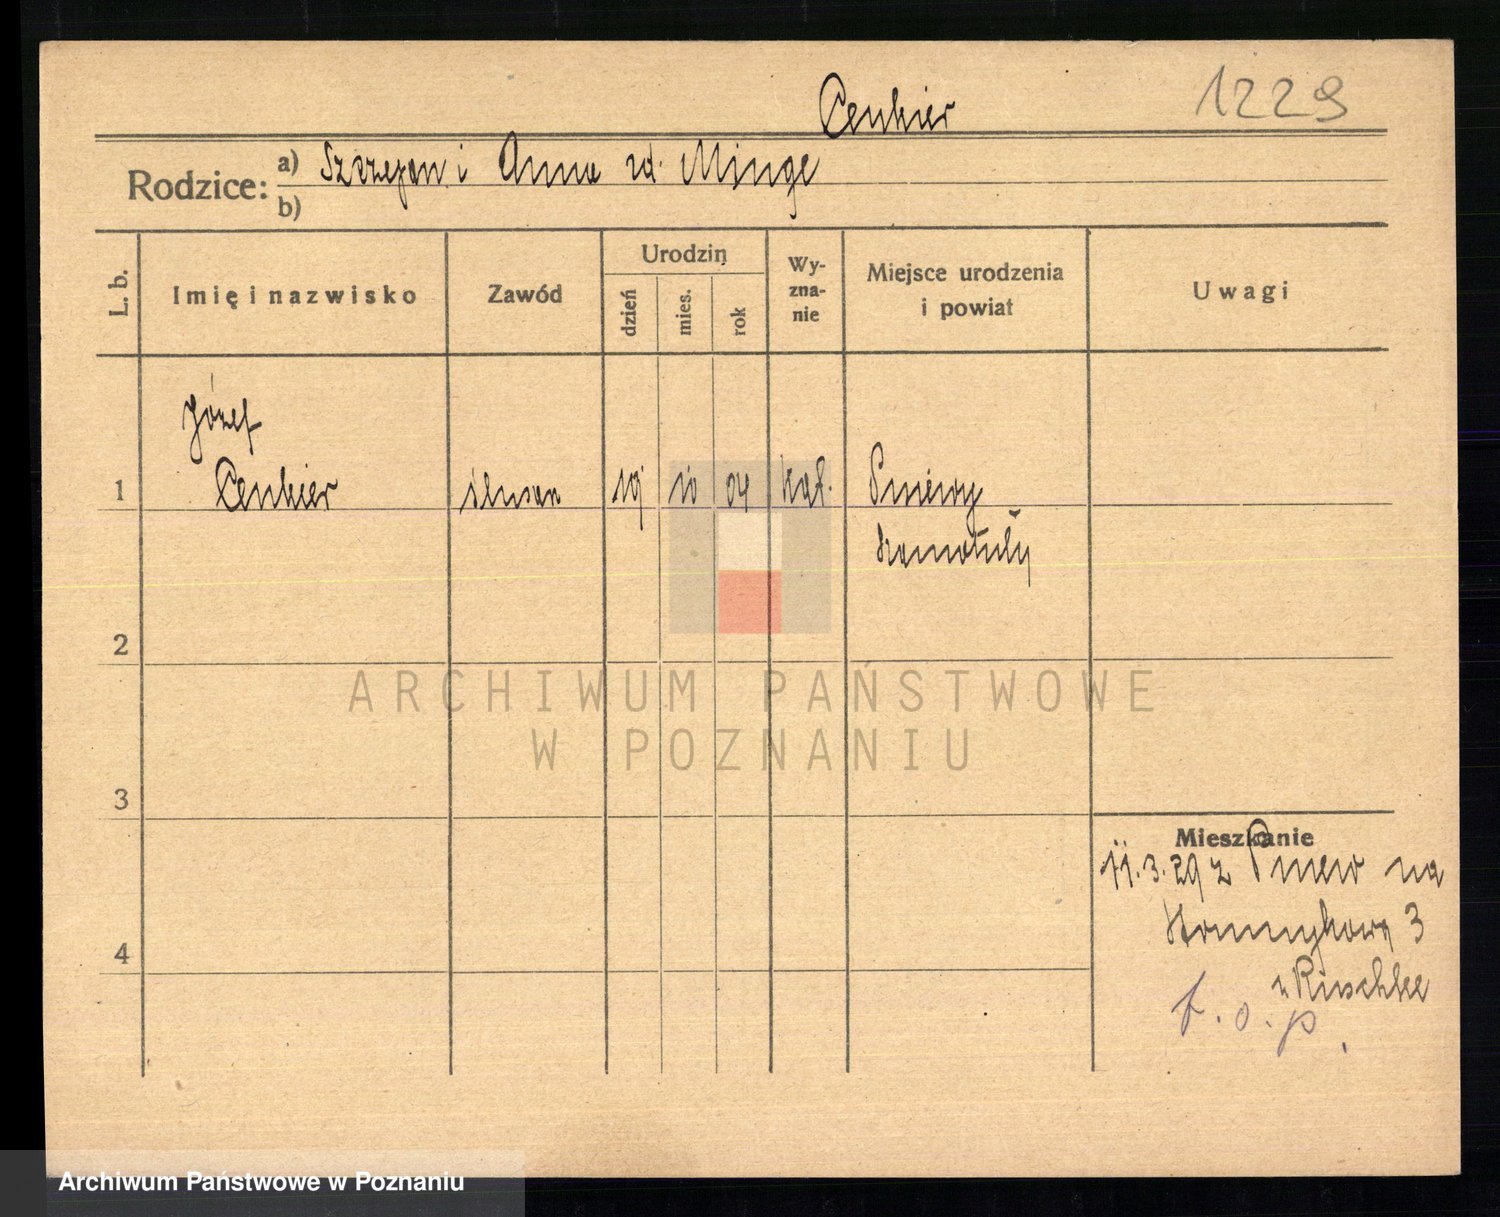 Cenkier 1229
Rodzice: a) Szczepan i Anna zd. Minge
b)
L. b. Imię i nazwisko Zawód Urodzin dzień mies. rok Wy-zna-nie Miejsce urodzenia i powiat Uwagi
Józef
1 Cenkier ślusarz 19 10 04 kat. Pniewy
Szamotuły
2
ARCHIWUM PAŃSTWOWE
W POZNANIU
3
Mieszkanie
11.3.29 z Pniew na
3
u
4
Archiwum Państwowe w Poznaniu